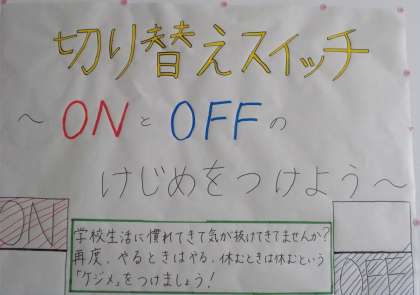 切り替えスイッチ
～ONとOFFの
けじめをつけよう～
ON
学校生活に慣れてきて気が抜けてきてませんか?
再度、やるときはやる、休むときは休むという
「ケジメ」をつけましょう!
OFF